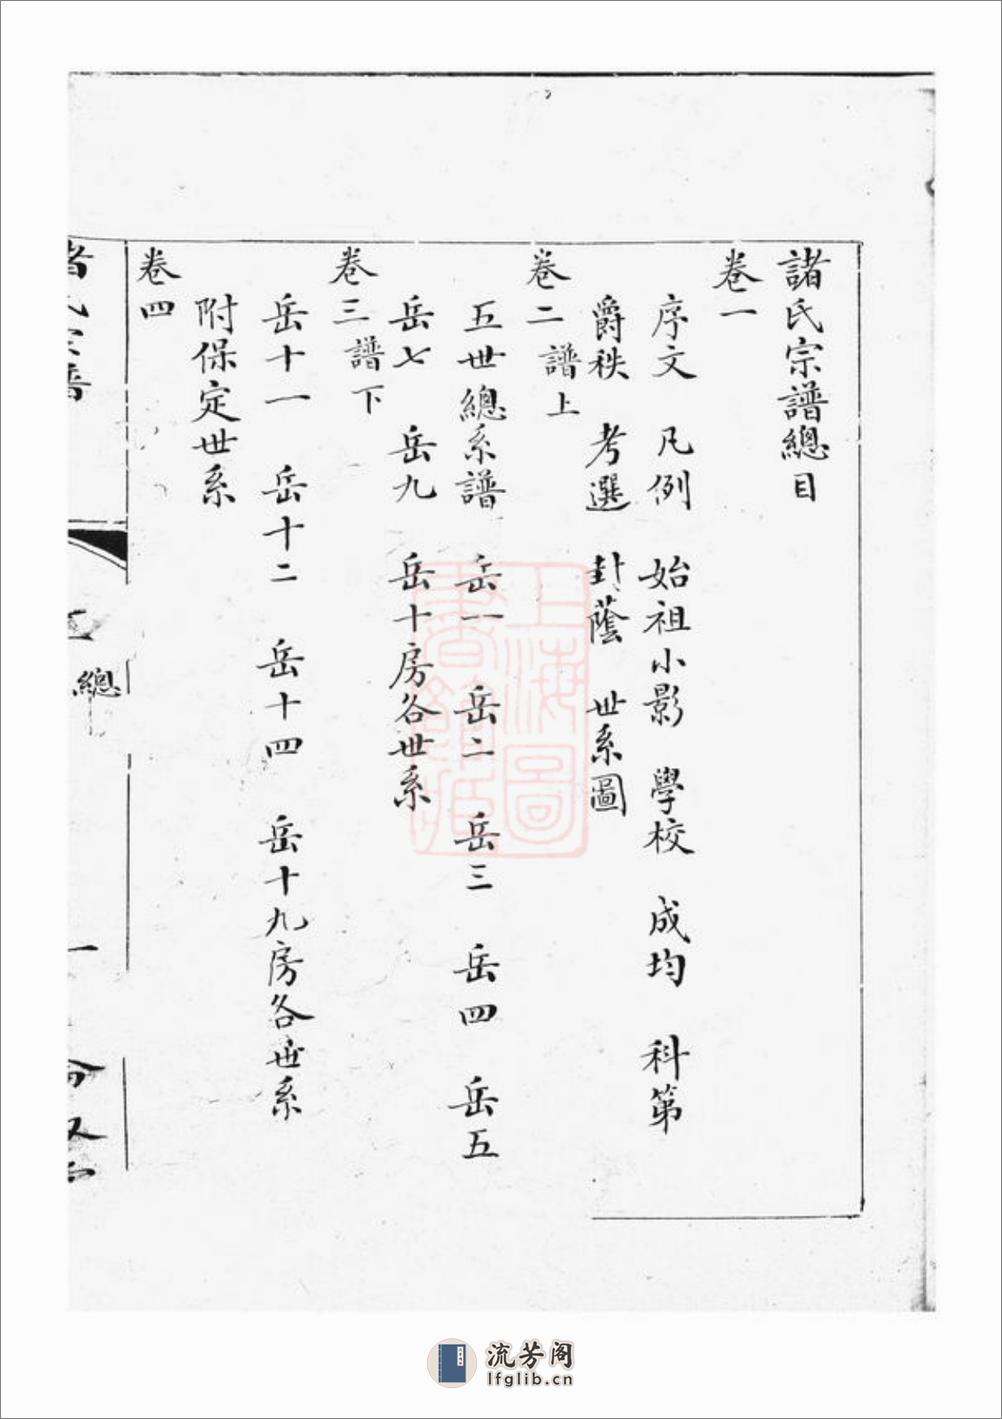 諸氏宗譜總目
卷一
序文 凡例 始祖小影 學校 成均 科第
爵秩 考選 封蔭 世系圖
卷二 譜上
五世總系譜 岳一 岳二 岳三 岳四 岳五
岳七 岳九 岳十房各世系
卷三 譜下
岳十一 岳十二 岳十四 岳十九房各世系
附保定世系
卷四
總
一
上海圖書館藏
流芳阁
lfglib.cn